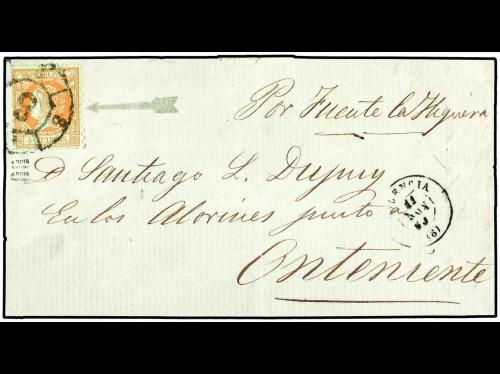 Por Fuente la Higuera
D. Santiago L. Dupuy
En los Alorines junto a
Onteniente